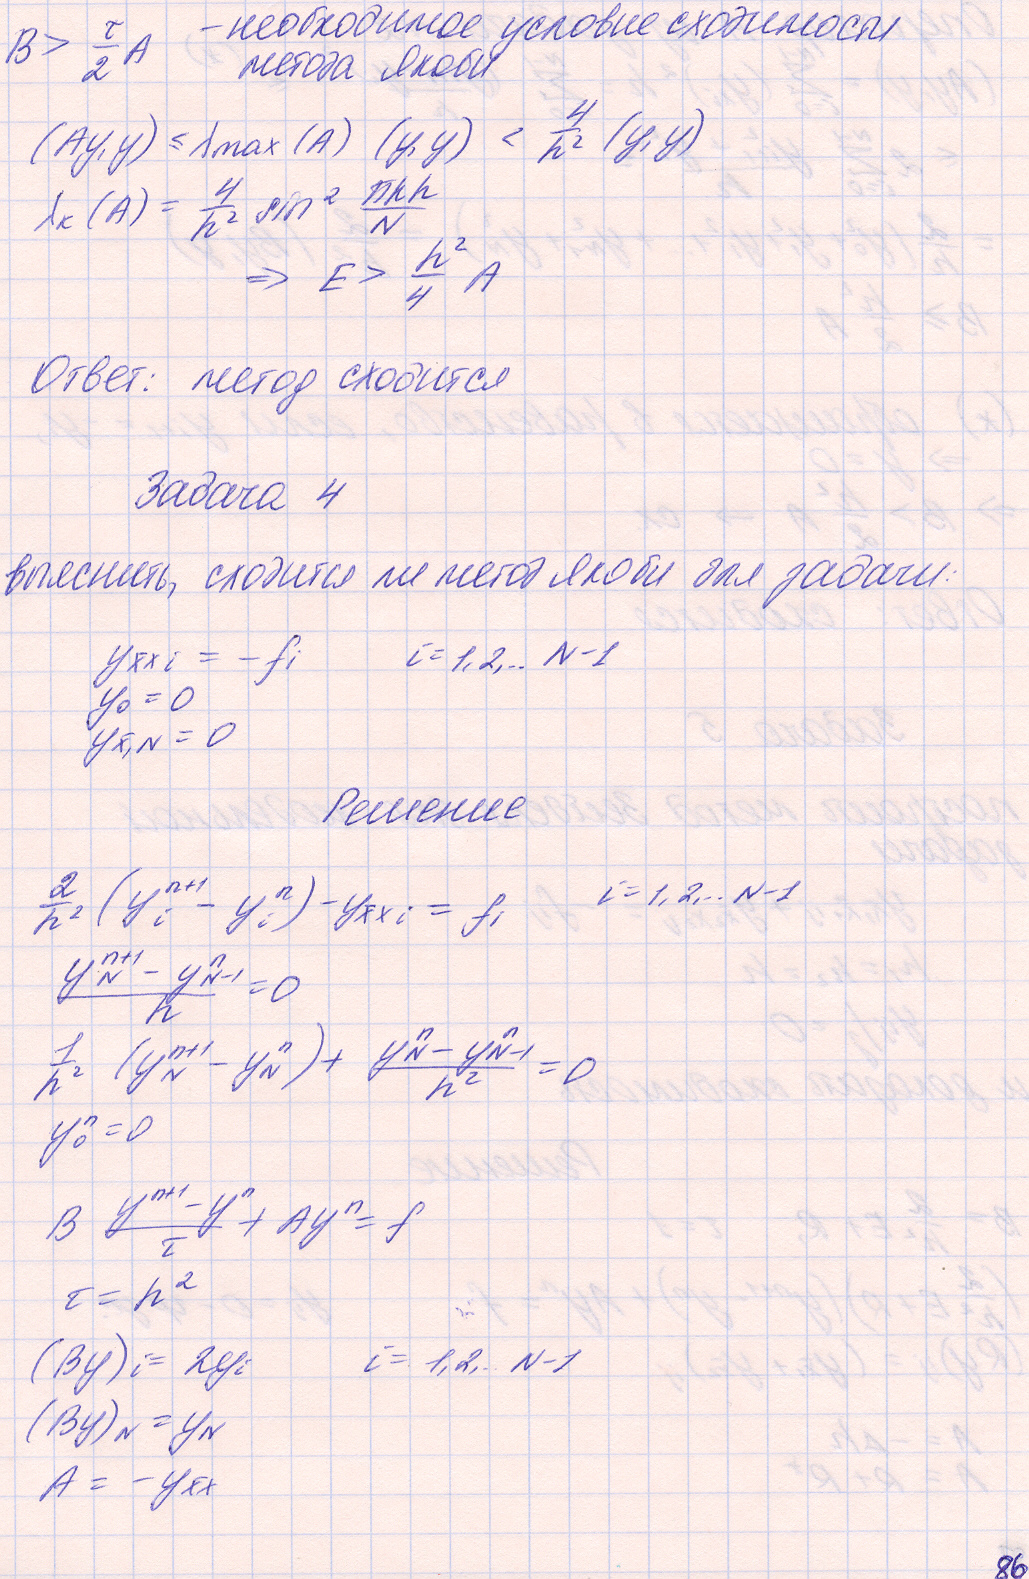 B > τ/2 A - необходимое условие сходимости
метода Якоби
(Ay,y) ≤ λmax(A) (y,y) < 4/h² (y,y)
λk(A) = 4/h² sin² πkh/N
=> E > h²/4 A
Ответ: метод сходится
Задача 4
выяснить, сходится ли метод Якоби для задачи:
y_x̄x i = -fi i=1,2,.. N-1
y0 = 0
y_x̄,N = 0
Решение
2/h² (y_i^{n+1} - y_i^n) - y_x̄x i = fi i=1,2,.. N-1
(y_N^{n+1} - y_{N-1}^n)/h = 0
1/h² (y_N^{n+1} - y_N^n) + (y_N^n - y_{N-1}^n)/h² = 0
y_0^n = 0
B (y^{n+1} - y^n)/τ + Ay^n = f
τ = h²
(By)i = 2yi i= 1,2,.. N-1
(By)N = yN
A = -y_x̄x
86